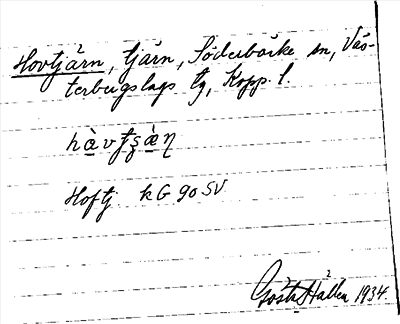 Hovtjärn, tjärn, Söderbärke sn, Väs-
terbergslags tg, Kopp. l.
hàvt̯ʂæ̀ɳ
Hoftj. kG 90 SV
Gösta Hallén 1934.